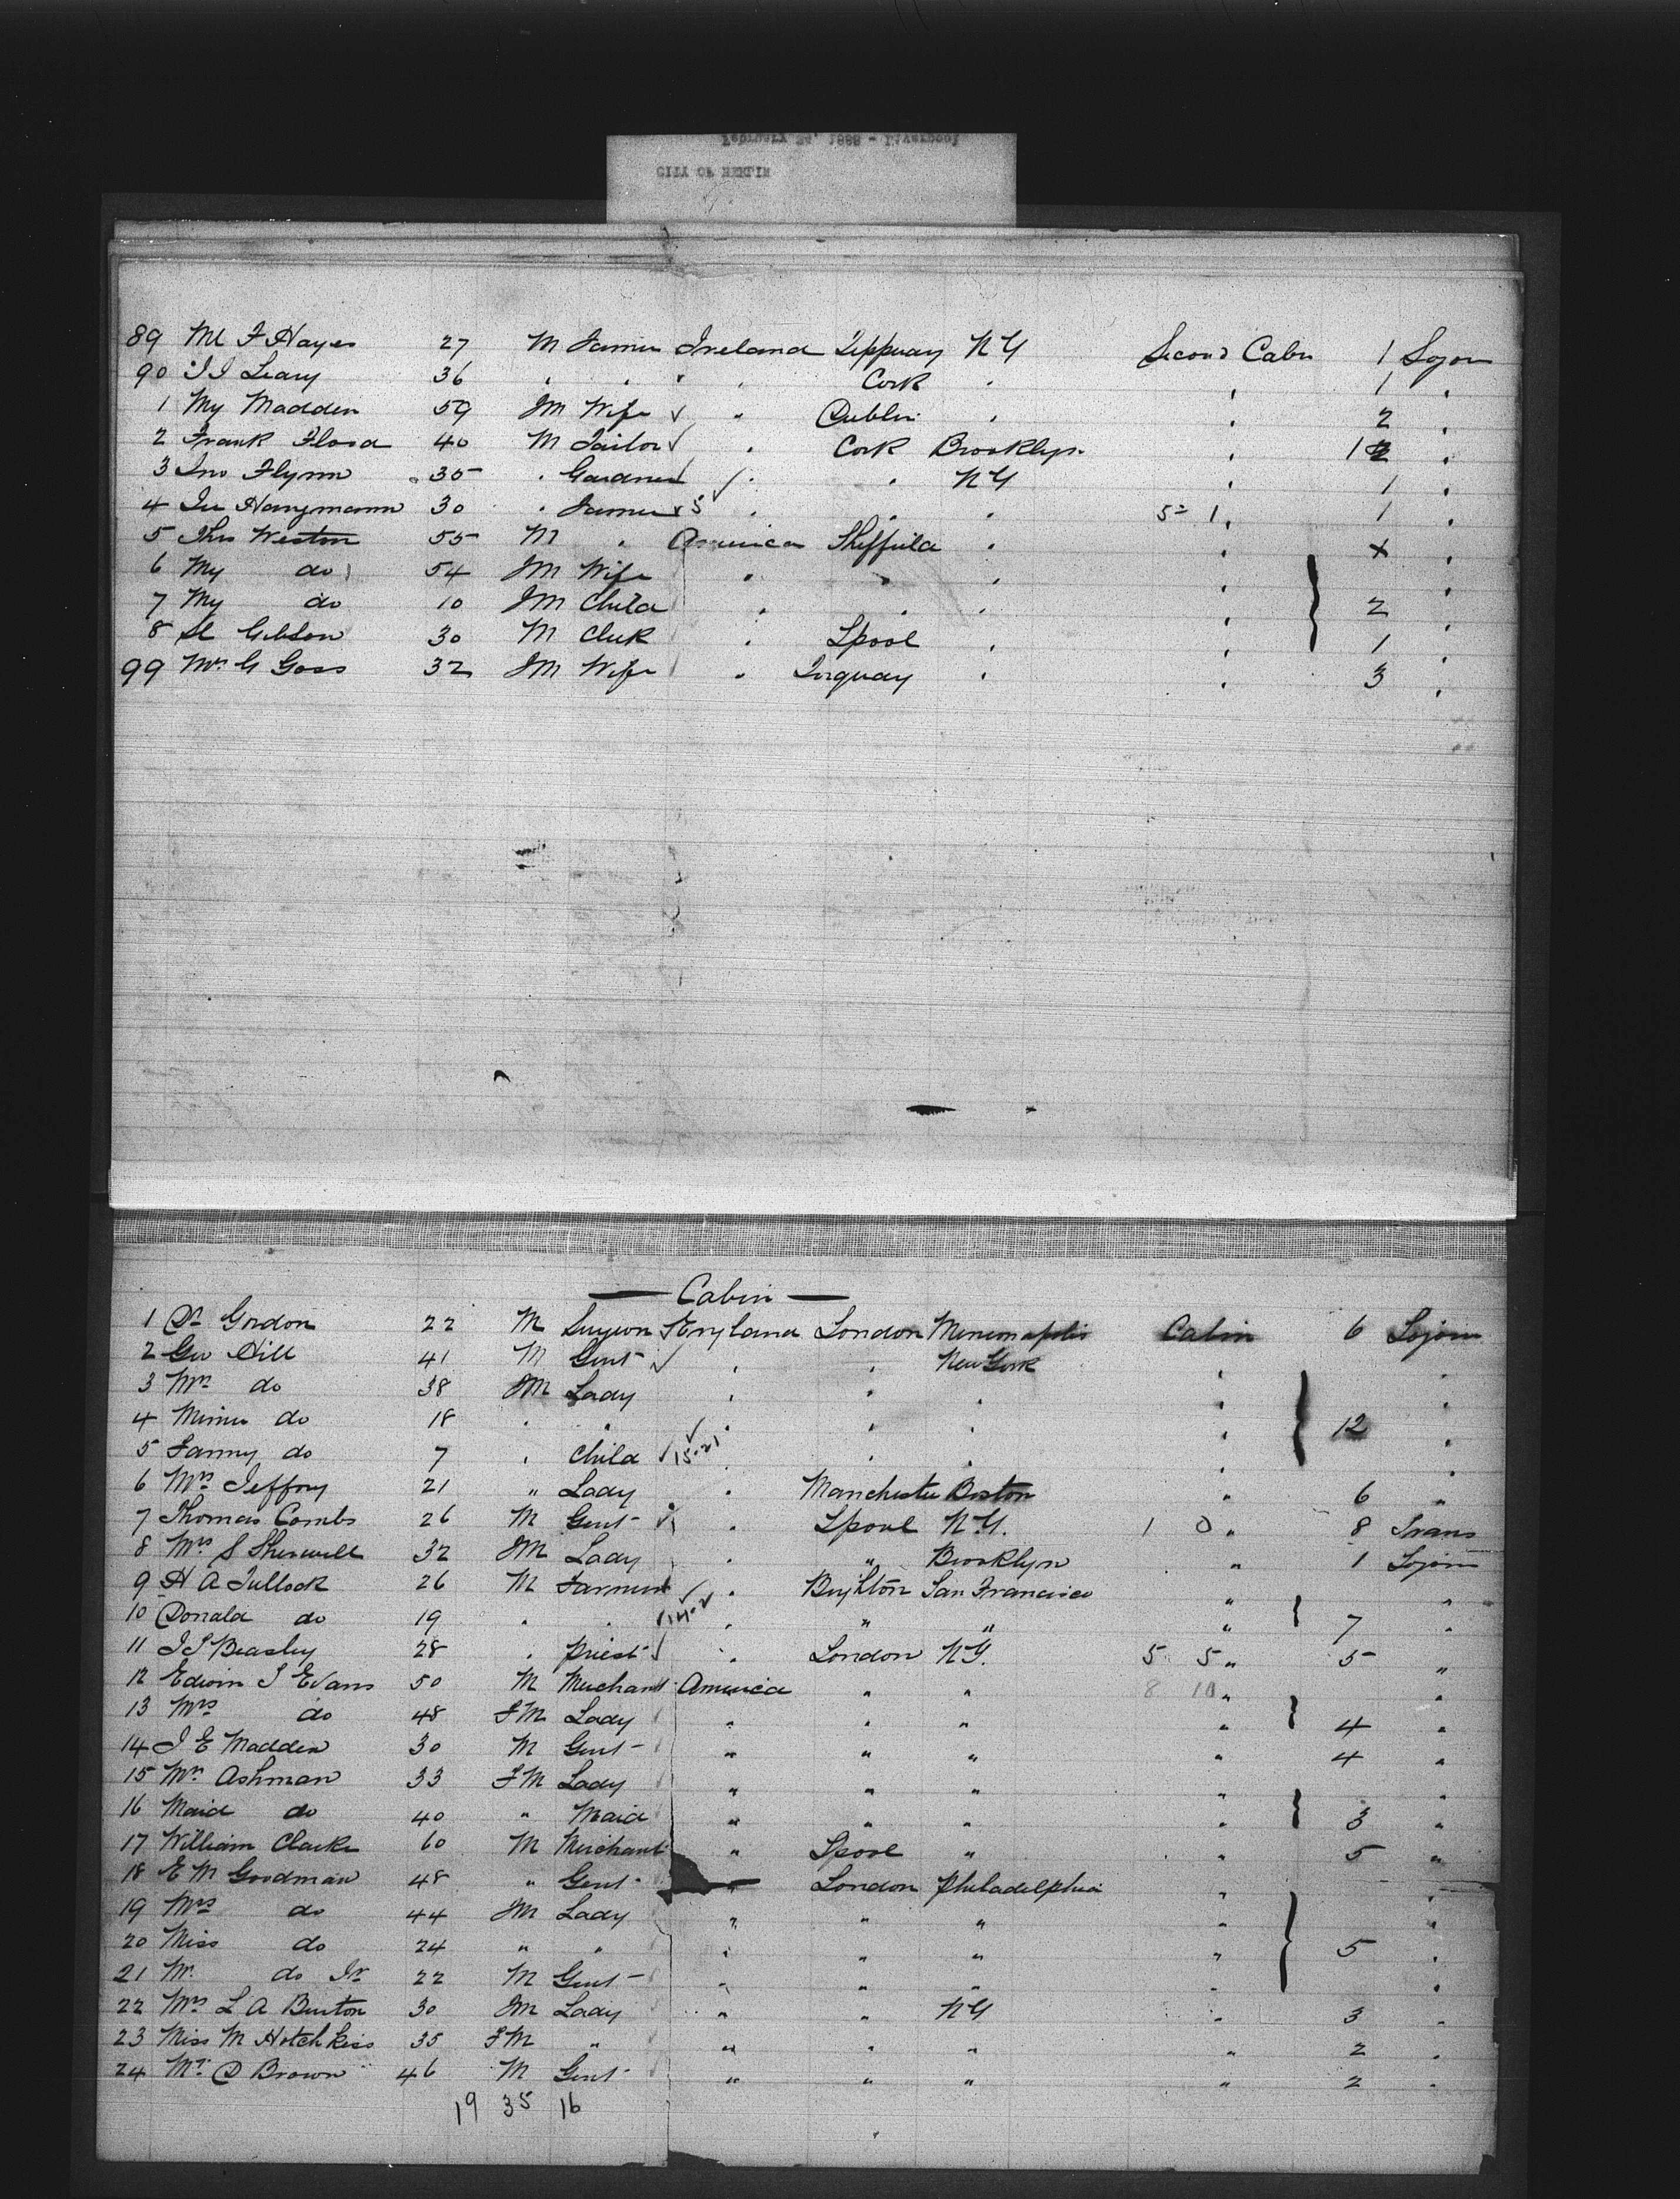 CITY OF BERLIN
89 Ml F Hayes 27 M Farmer Ireland Tippuary NY Second Cabin 1 Sojou
90 J J Leary 36 " " " " Cork " " 1 "
1 My Madden 59 FM Wife " Dublin " " 2 "
2 Frank Flood 40 M Tailor " Cork Brooklyn " 1 "
3 Jno Flynn 35 " Gardner " " NY " 1 "
4 30 " Farmer " " " 5 1 " 1 "
5 Thos Weston 55 M " America Sheffield " " X "
6 My do 54 FM Wife " " " " "
7 My do 10 FM Child " " " " 2 "
8 Gibson 30 M Clerk " Lpool " " 1 "
99 Mrs G Goss 32 FM Wife " Torquay " " 3 "
Cabin
1 Dr Gordon 22 M Surgeon England London Minneapolis Cabin 6 Sojou
2 Geo Hill 41 M Gent " " New York " "
3 Mrs do 38 FM Lady " " " " "
4 Minnie do 18 " " " " " " 12 "
5 Fanny do 7 " Child 15-21 " " " " "
6 Mrs Jeffory 21 " Lady " Manchester Boston " 6 "
7 Thomas Combs 26 M Gent " Lpool N.Y. 1 0 " 8 Trans
8 Mrs S Sherwell 32 FM Lady " " Brooklyn " 1 Sojou
9 H A Tullock 26 M Farmer " Brighton San Francisco " "
10 Donald do 19 " " 14-2 " " " " 7 "
11 J S Beasley 28 " Priest " London N.Y. 5 5 " 5 "
12 Edwin J Evans 50 M Merchant America " " 8 10 " "
13 Mrs do 48 FM Lady " " " " 4 "
14 J E Madden 30 M Gent " " " " 4 "
15 Mrs Ashman 33 FM Lady " " " " "
16 Maid do 40 " Maid " " " " 3 "
17 William Clarke 60 M Merchant " Lpool " " 5 "
18 E M Goodman 48 " Gent " London Philadelphia " "
19 Mrs do 44 FM Lady " " " " "
20 Miss do 24 " " " " " " 5 "
21 Mr. do Jr 22 M Gent " " " " "
22 Mrs L A Burton 30 FM Lady " " NY " 3 "
23 Miss M Hotchkiss 35 FM " " " " " 2 "
24 Mr. D Brown 46 M Gent " " " " 2 "
19 35 16